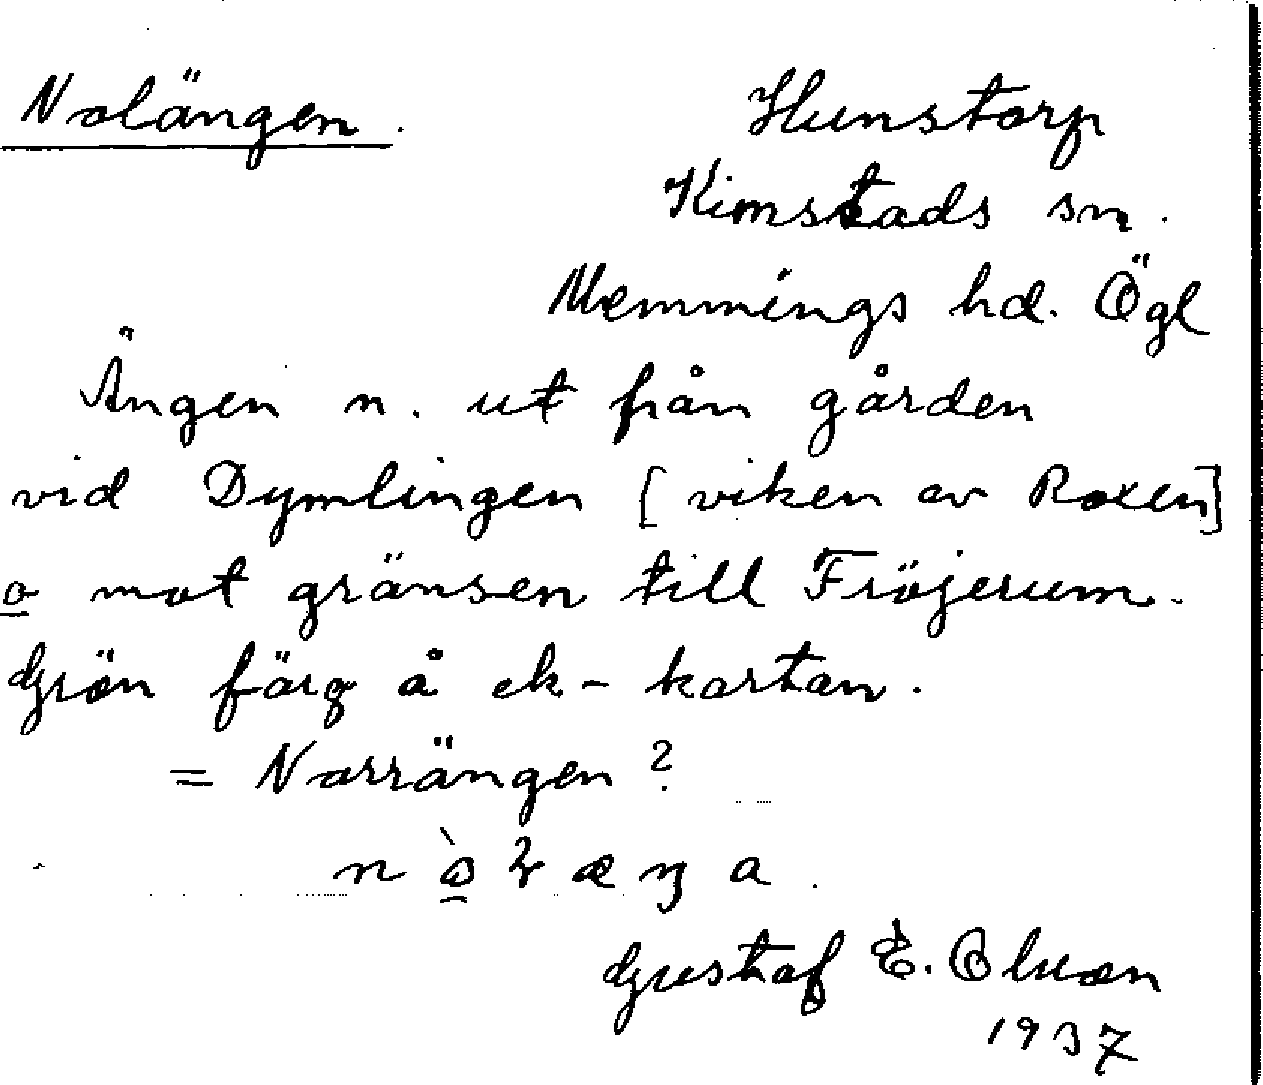 Nolängen. Hunstorp
Kimstads sn.
Memmings hd. Ögl
Ängen n. ut från gården
vid Dymlingen [viken av Roxen]
o mot gränsen till Fröjerum.
Grön färg å ek-kartan.
= Norrängen?
Gustaf E. Olsson
1937